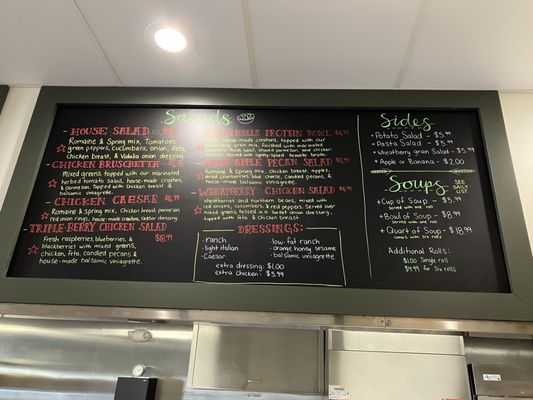 Salads
- HOUSE SALAD
Romaine & Spring mix, Tomatoes,
green peppers, cucumbers, onions, feta,
chicken breast, & Vidalia onion dressing
- CHICKEN BRUSCHETTA
Mixed greens, topped with our marinated
herbed tomatoes, house-made croutons
& parmesan. Topped with chicken breast &
balsamic vinaigrette.
- CHICKEN CAESAR
Romaine & Spring mix, Chicken breast, parmesan
red onion rings, house-made croutons, caesar dressing
TRIPLE-BERRY CHICKEN SALAD
$8.99
Fresh raspberries, blueberries, &
blackberries with mixed greens,
feta, candied pecans &
house-made balsamic vinaigrette.
PROTEIN BOWL
APPLE PECAN SALAD
Romaine & Spring mix, chicken breast, apples,
dried cranberries, blue cheese, candied pecans, &
house-made balsamic vinaigrette.
WHEATBERRY CHICKEN SALAD
Wheatberries and northern beans, mixed with
red onions, cucumbers, & red peppers. Served over
mixed greens, tossed in a sweet onion dressing,
and topped with chicken breast.
DRESSINGS:
- ranch
- light italian
- Caesar
- low-fat ranch
- orange honey sesame
- balsamic vinaigrette
extra dressing: $1.00
extra chicken: $5.99
Sides
Potato Salad - $5.99
served with one roll
Pasta Salad - $5.99
Wheatberry grain Salad - $5.99
Apple or Banana - $2.00
Soups
SEE
DAILY
LIST
Cup of Soup - $5.99
served with one roll
Bowl of Soup - $8.99
served with one roll
Quart of Soup - $18.99
comes with six rolls
Additional Rolls:
$1.00 Single roll
$4.99 for Six rolls